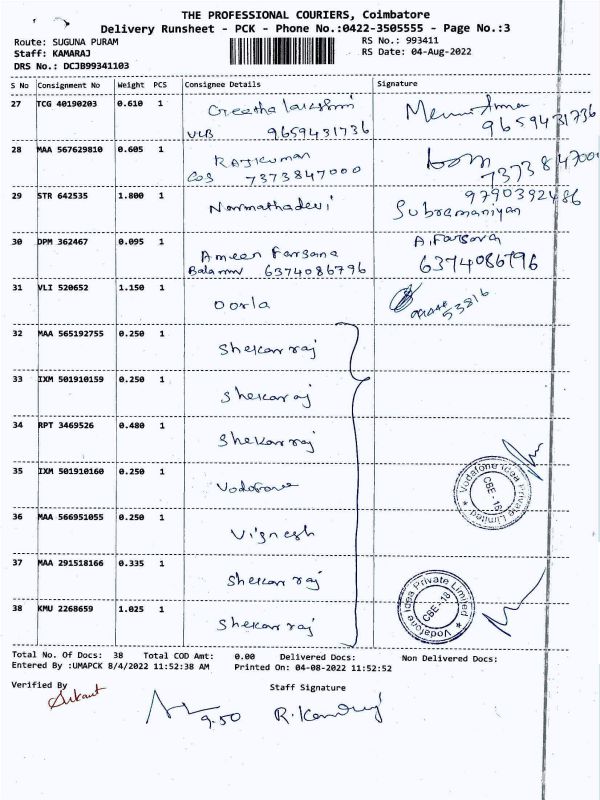 THE PROFESSIONAL COURIERS, Coimbatore
Delivery Runsheet - PCK - Phone No.:0422-3505555 - Page No.:3
Route: SUGUNA PURAM RS No.: 993411
Staff: KAMARAJ RS Date: 04-Aug-2022
DRS No.: DCJB99341103
S No Consignment No Weight PCS Consignee Details Signature
27 TCG 40190203 0.610 1 Geetha lakshmi
VLB 9659431736 9659431736
28 MAA 567629810 0.605 1 Rajkumar
7373847000 7373847000
29 STR 642535 1.800 1 Narmathadevi 9790392486
Subramaniyan
30 DPM 362467 0.095 1 Ameen Farsana A.Farsana
6374086796 6374086796
31 VLI 520652 1.150 1 Oorla 53816
32 MAA 565192755 0.250 1 Shekar raj
33 IXM 501910159 0.250 1 Shekar raj
34 RPT 3469526 0.480 1 Shekar raj
35 IXM 501910160 0.250 1 Vodafone
Vodafone Idea Private Limited
CBE - 18
36 MAA 566951055 0.250 1 Vignesh
37 MAA 291518166 0.335 1 Shekar raj
38 KMU 2268659 1.025 1 Shekar raj
Vodafone Idea Private Limited
CBE - 18
Total No. Of Docs: 38 Total COD Amt: 0.00 Delivered Docs: Non Delivered Docs:
Entered By :UMAPCK 8/4/2022 11:52:38 AM Printed On: 04-08-2022 11:52:52
Verified By Staff Signature
9.50